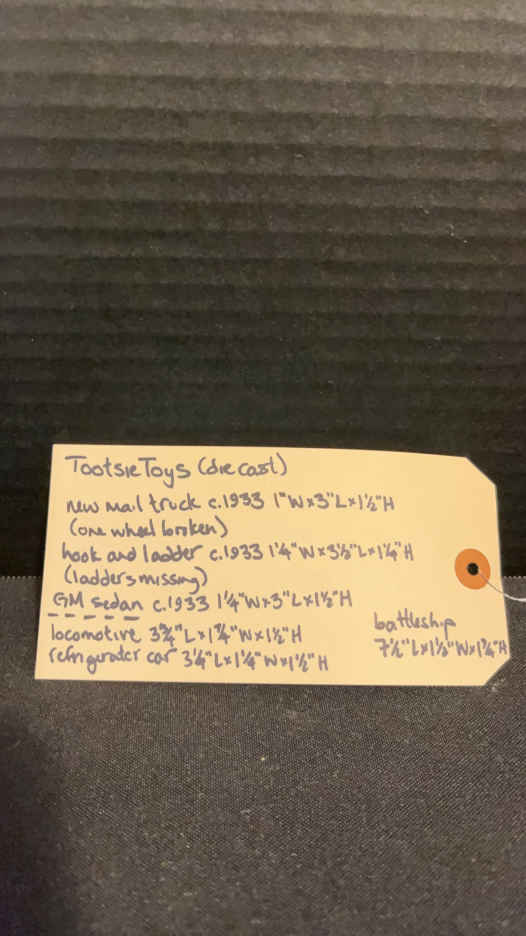 TootsieToys (die cast)
new mail truck c.1933 1"W x 3"L x 1½"H
(one wheel broken)
hook and ladder c.1933 1¼"W x 3½"L x 1¼"H
(ladders missing)
GM sedan c.1933 1¼"W x 3"L x 1½"H
locomotive 3¾"L x 1¼"W x 1½"H
refrigerater car 3¼"L x 1¼"W x 1½"H
battleship
7½"L x 1½"W x 1¾"H